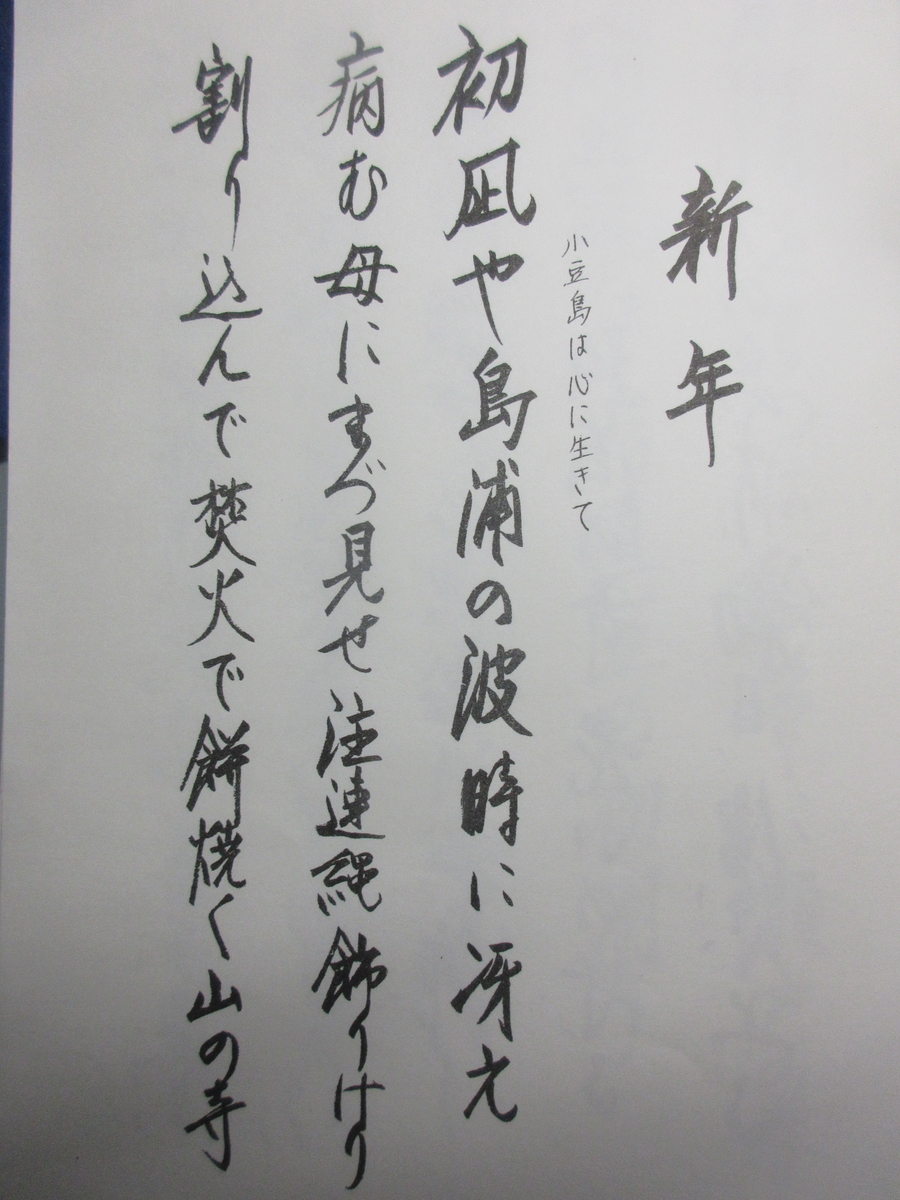 新年
小豆島は心に生きて
初凪や島浦の波時に冴え
病む母にまづ見せ注連縄飾りけり
割り込んで焚火で餅焼く山の寺